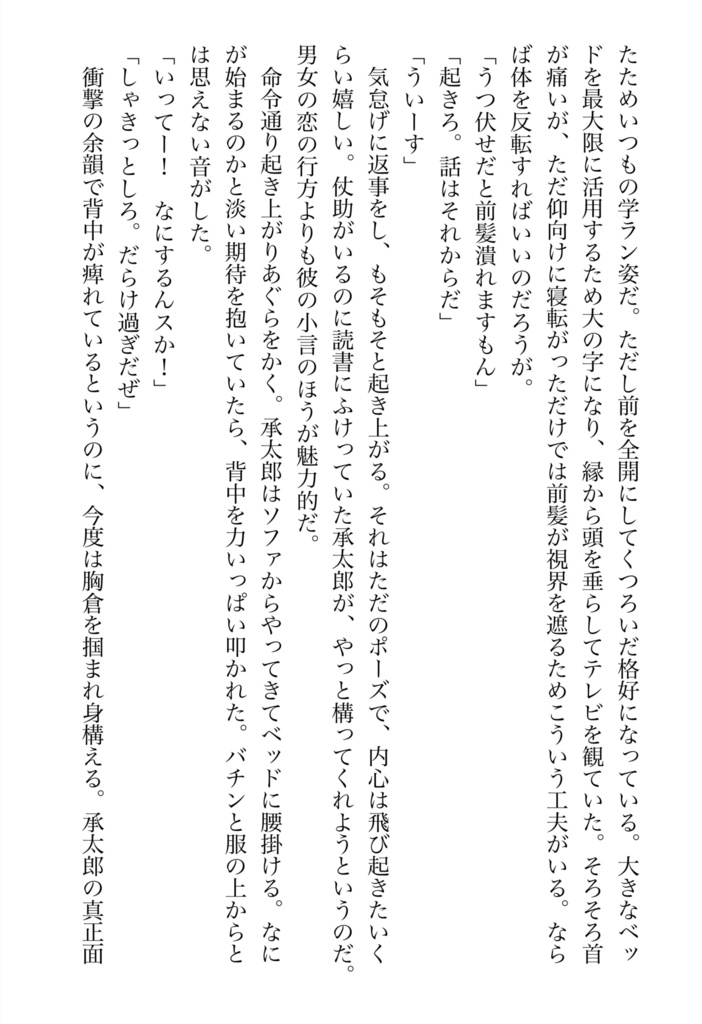 たためいつもの学ラン姿だ。ただし前を全開にしてくつろいだ格好になっている。大きなベッ
ドを最大限に活用するため大の字になり、縁から頭を垂らしてテレビを観ていた。そろそろ首
が痛いが、ただ仰向けに寝転がっただけでは前髪が視界を遮るためこういう工夫がいる。なら
ば体を反転すればいいのだろうが。
「うつ伏せだと前髪潰れますもん」
「起きろ。話はそれからだ」
「ういーす」
気怠げに返事をし、もそもそと起き上がる。それはただのポーズで、内心は飛び起きたいく
らい嬉しい。仗助がいるのに読書にふけっていた承太郎が、やっと構ってくれようというのだ。
男女の恋の行方よりも彼の小言のほうが魅力的だ。
命令通り起き上がりあぐらをかく。承太郎はソファからやってきてベッドに腰掛ける。なに
が始まるのかと淡い期待を抱いていたら、背中を力いっぱい叩かれた。バチンと服の上からと
は思えない音がした。
「いってー！　なにするんスか！」
「しゃきっとしろ。だらけ過ぎだぜ」
衝撃の余韻で背中が痺れているというのに、今度は胸倉を掴まれ身構える。承太郎の真正面